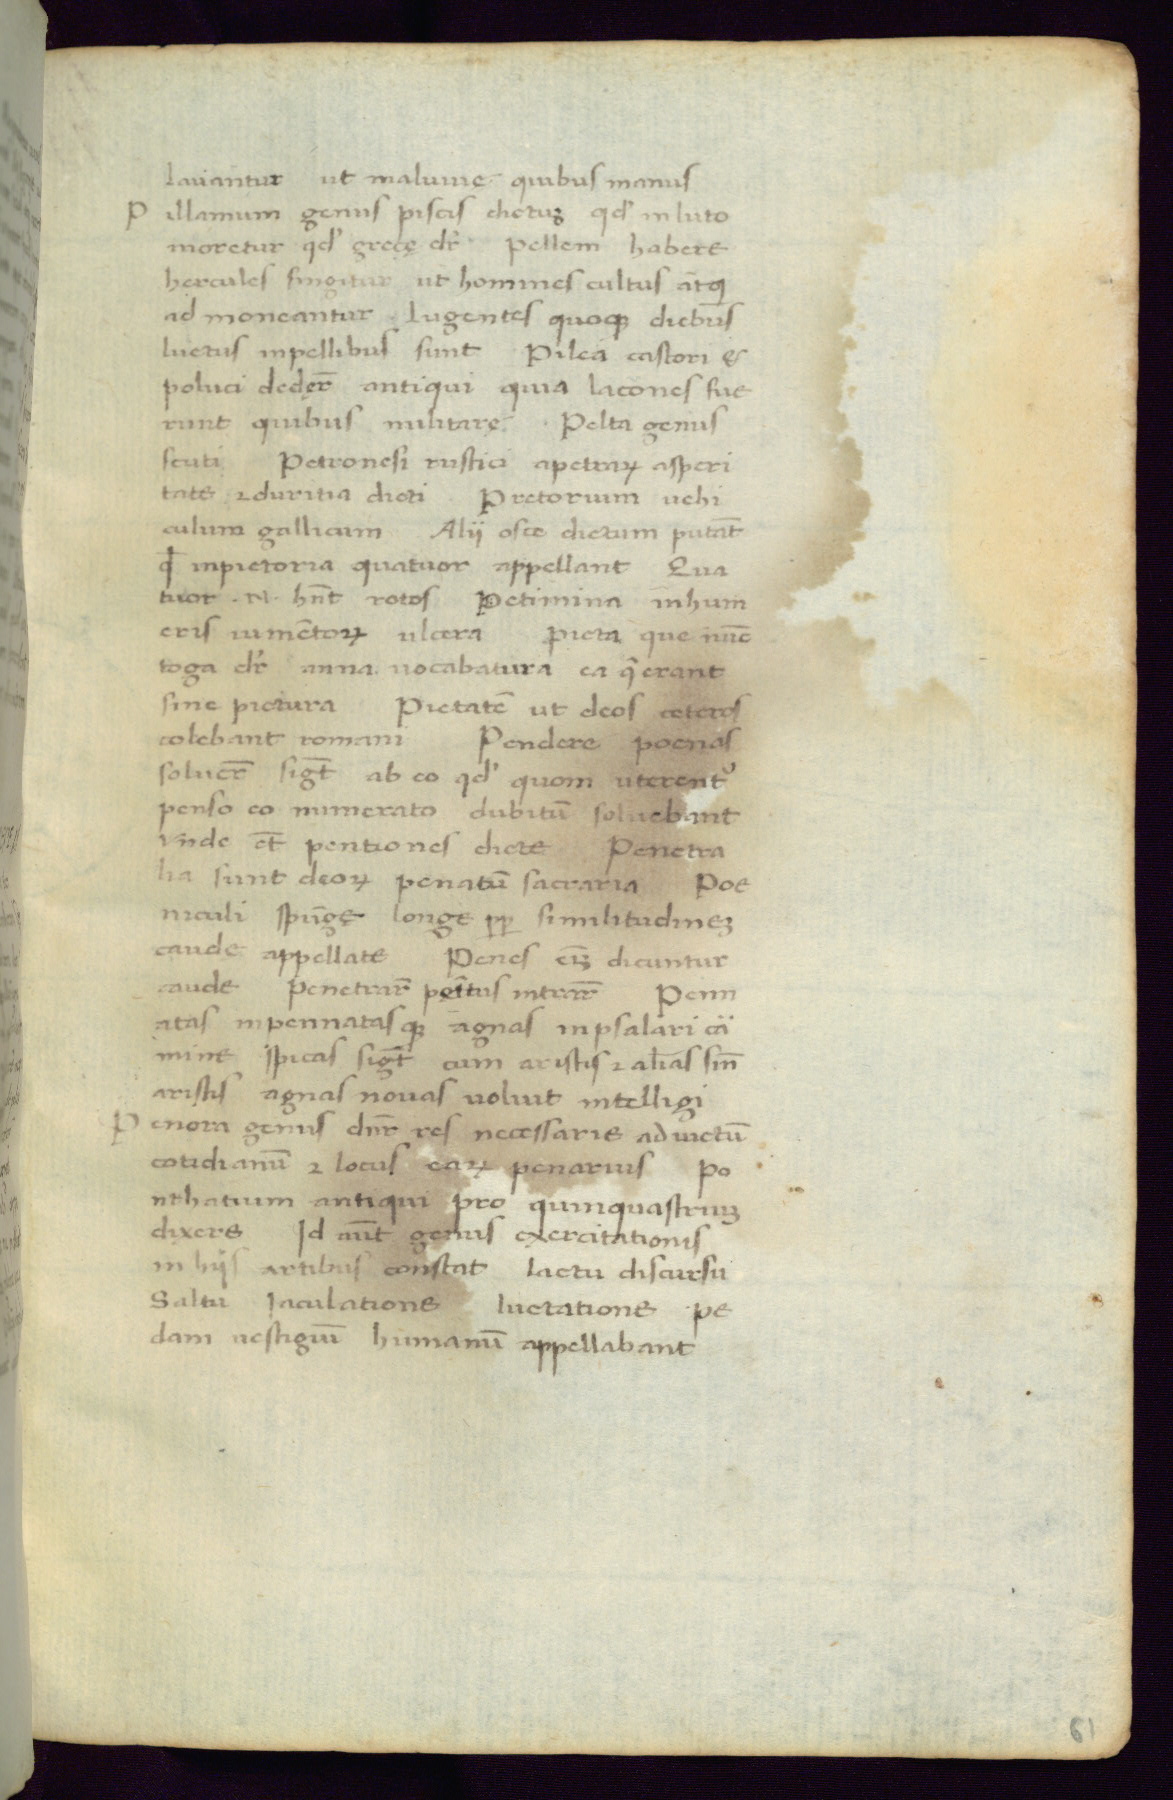 lauantur ut maluuie quibus manus
P illamum genus piscis dictuꝫ qd' in luto
moretur qd' grece dr̄ Pellem habere
hercules fingitur ut homines cultus ātq̄
ad moneantur lugentes quoqꝫ diebus
luctus inpellibus sunt Pilea castori &
poluci deder̄ antiqui quia lacones fue
runt quibus militare Pelta genus
scuti Petronesi rustici apetraꝝ asperi
tate ⁊ duritia dicti Pretorium uehi
culum gallicum Alij osce dictum putāt
qđ inpictoria quatuor appellant Qua
tuor .n. hn̄t rotos Petimina in hum
eris iumētoꝝ ulcera picta que nūc
toga dr̄ anna uocabatura ea q̄ erant
sine pictura Pietatē ut deos ceteros
colebant romani Pendere poenas
soluer̄ sigt̄ ab eo qd' quom uterent᷒
penso eo numerato dubitū soluebant
Vnde et̄ pentiones dicte Penetra
lia sunt deoꝝ penatū sacraria Poe
niculi spūge longe ꝓp̄ similitudineꝫ
caude appellate Penes eīꝫ dicuntur
caude Penetrar̄ pēitus intrar̄ Penn
atas inpennatasqꝫ agnas inpsalari cā
mine spicas sigt̄ cum aristis ⁊ alias sin̄
aristis agnas nouas uoluit intelligi
P enora genus dn̄r res necessarie aduictū
cotidianū ⁊ locus eaꝝ penarius Po
nthatium antiqui pro quinquastriuꝫ
dixere Id aūt genus exercitationis
in hijs artibus constat lactu discursu
Saltu Iaculatione luctatione pe
dam uestigiuī humanū appellabant
61